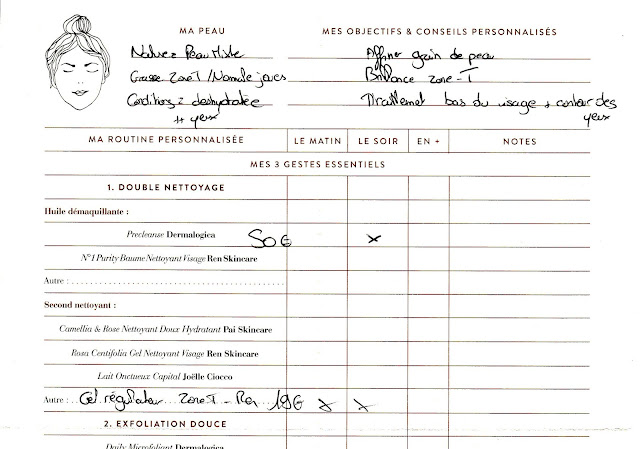 MA PEAU
MES OBJECTIFS & CONSEILS PERSONNALISÉS
Nature Peau Mixte
Affiner grain de peau
Grasse Zone T / Normale joues
Brillance zone-T
Condition : deshydratée
++ yeux
bas du visage + contour des
yeux
MA ROUTINE PERSONNALISÉE LE MATIN LE SOIR EN + NOTES
MES 3 GESTES ESSENTIELS
1. DOUBLE NETTOYAGE
Huile démaquillante :
Precleanse Dermalogica 50€ x
N°1 Purity Baume Nettoyant Visage Ren Skincare
Autre :
Second nettoyant :
Camellia & Rose Nettoyant Doux Hydratant Pai Skincare
Rosa Centifolia Gel Nettoyant Visage Ren Skincare
Lait Onctueux Capital Joëlle Ciocco
Autre : Gel régulateur Zone T - Ren 19€ x x
2. EXFOLIATION DOUCE
Daily Microfoliant Dermalogica